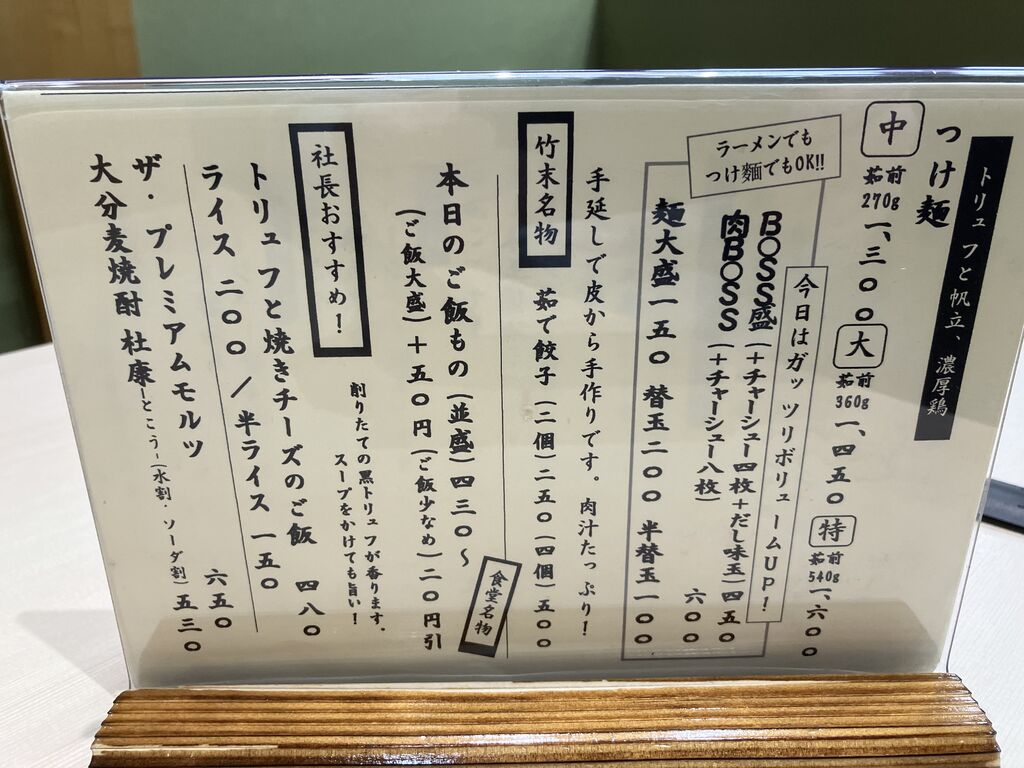 トリュフと帆立、濃厚鶏
つけ麺
中 茹前270g 一、三〇〇
大 茹前360g 一、四五〇
特 茹前540g 一、六〇〇
ラーメンでも
つけ麵でもOK!!
今日はガッツリボリュームUP!
BOSS盛(+チャーシュー四枚+だし味玉)四五〇
肉BOSS(+チャーシュー八枚) 六〇〇
麺大盛一五〇 替玉二〇〇 半替玉一〇〇
手延しで皮から手作りです。肉汁たっぷり!
竹末名物
茹で餃子(二個)二五〇(四個)五〇〇
食堂名物
本日のご飯もの(並盛)四三〇~
(ご飯大盛)+五〇円(ご飯少なめ)二〇円引
社長おすすめ!
削りたての黒トリュフが香ります。
スープをかけても旨い!
トリュフと焼きチーズのご飯 四八〇
ライス 二〇〇/半ライス 一五〇
ザ・プレミアムモルツ 六五〇
大分麦焼酎 杜康-とこう-(水割・ソーダ割)五三〇